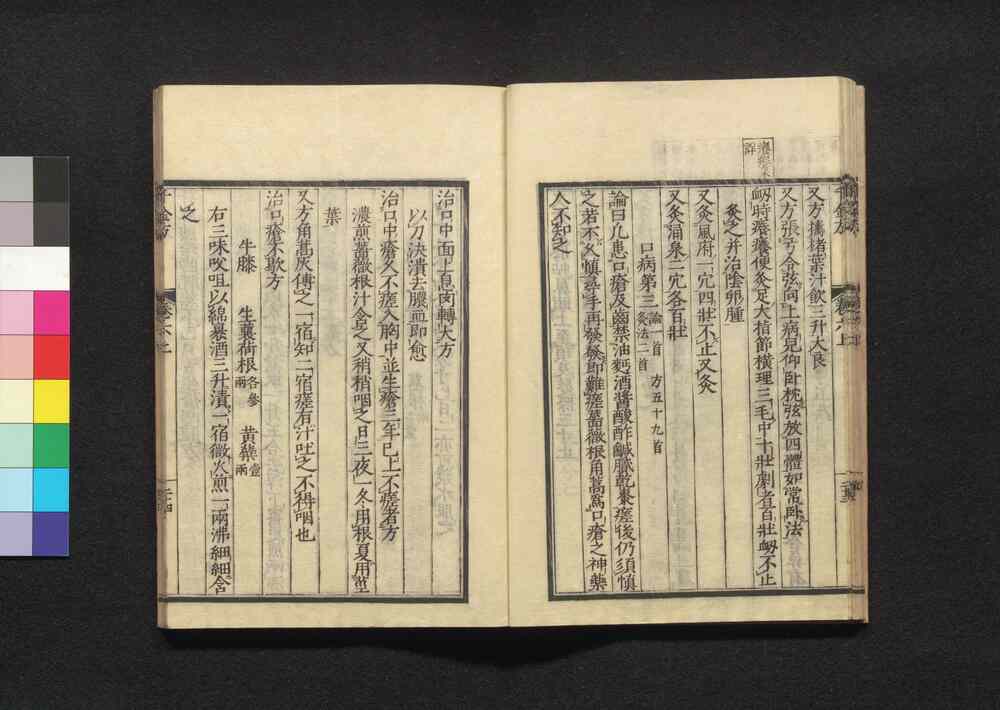 又方擣楮葉汁飲三升大良
又方張弓令弦向上病兒仰臥枕弦放四體如常臥法
衂時癢癢便灸足大指節橫理三毛中十壯劇者百壯衂不止
灸之并治陰卵腫
又灸風府一穴四壯不止又灸
又灸涌泉二穴各百壯
口病第三 論一首 方五十九首 灸法二首
論曰凡患口瘡及齒禁油麪酒醬酸酢鹹膩乾棗瘥後仍須慎
之若不久慎尋手再發發即難瘥薔薇根角蒿爲口瘡之神藥
人不知之
千金方
卷六上
治口中面上息肉轉大方
以刀決潰去膿血即愈
治口中瘡久不瘥入胸中並生瘡三年已上不瘥者方
濃煎薔薇根汁含之又稍稍咽之日三夜一冬用根夏用莖
葉
又方角蒿灰傅之一宿知二宿瘥有汁吐之不得咽也
治口瘡不歇方
牛膝 生蘘荷根各參兩 黃蘗壹兩
右三味㕮咀以綿裹酒三升漬一宿微火煎一兩沸細細含
之
千金方